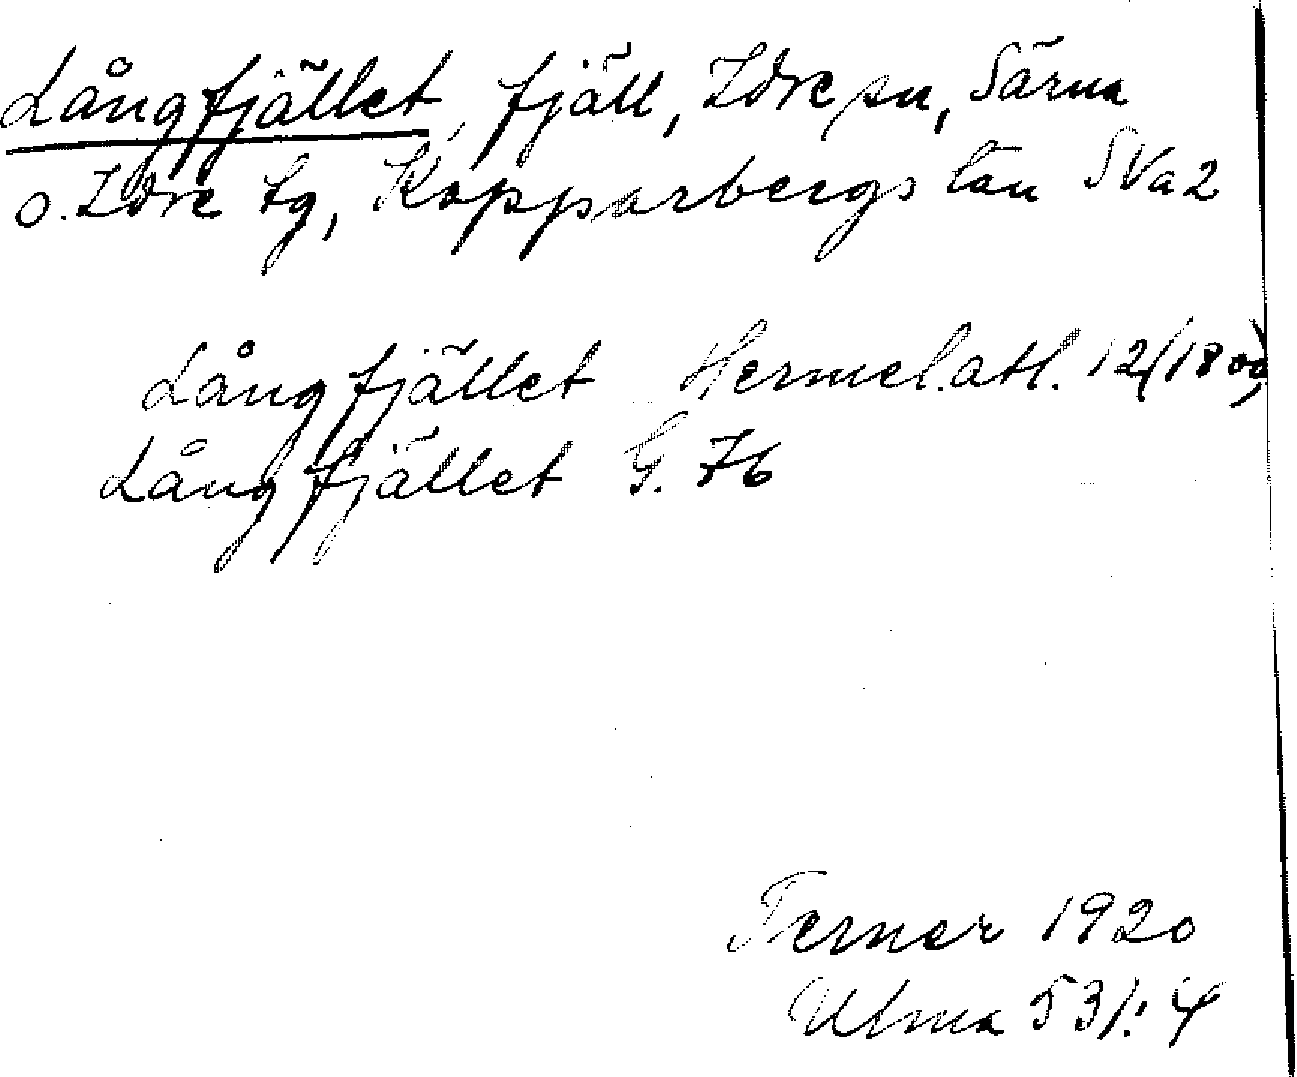 Långfjället, fjäll, Idre sn, Särna
o. Idre tg, Kopparbergs län SVa2
Långfjället Hermel.atl. 12(1800)
Långfjället G. 76
Terner 1920
Ulma 531:4